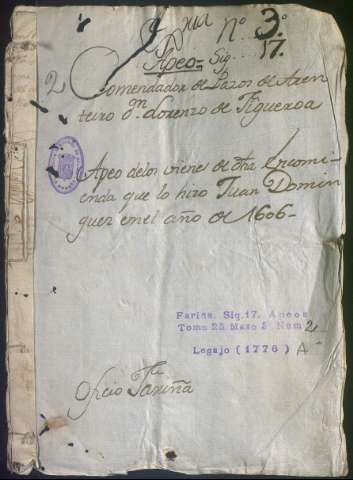 Nº 3º
Apeo= Sig. 17.
2 Comendador de Pazos de Aren
teiro Dn. Lorenzo de Figueroa
Apeo de los vienes de dha Encomi
enda que lo hizo Juan Domin
guez en el año de 1606-
Fariña. Sig. 17. Apeos
Tomo 25 Mazo 2 Num 2
Legajo (1776) A
Oficio Fariña